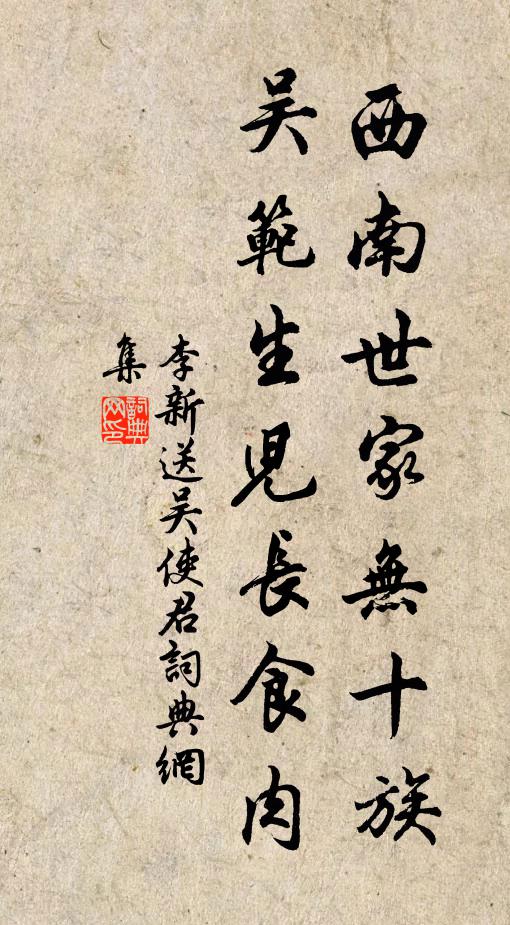 西南世家無十族
吴範生児長食肉
李新送吴使君詞典網
集
詞典网印